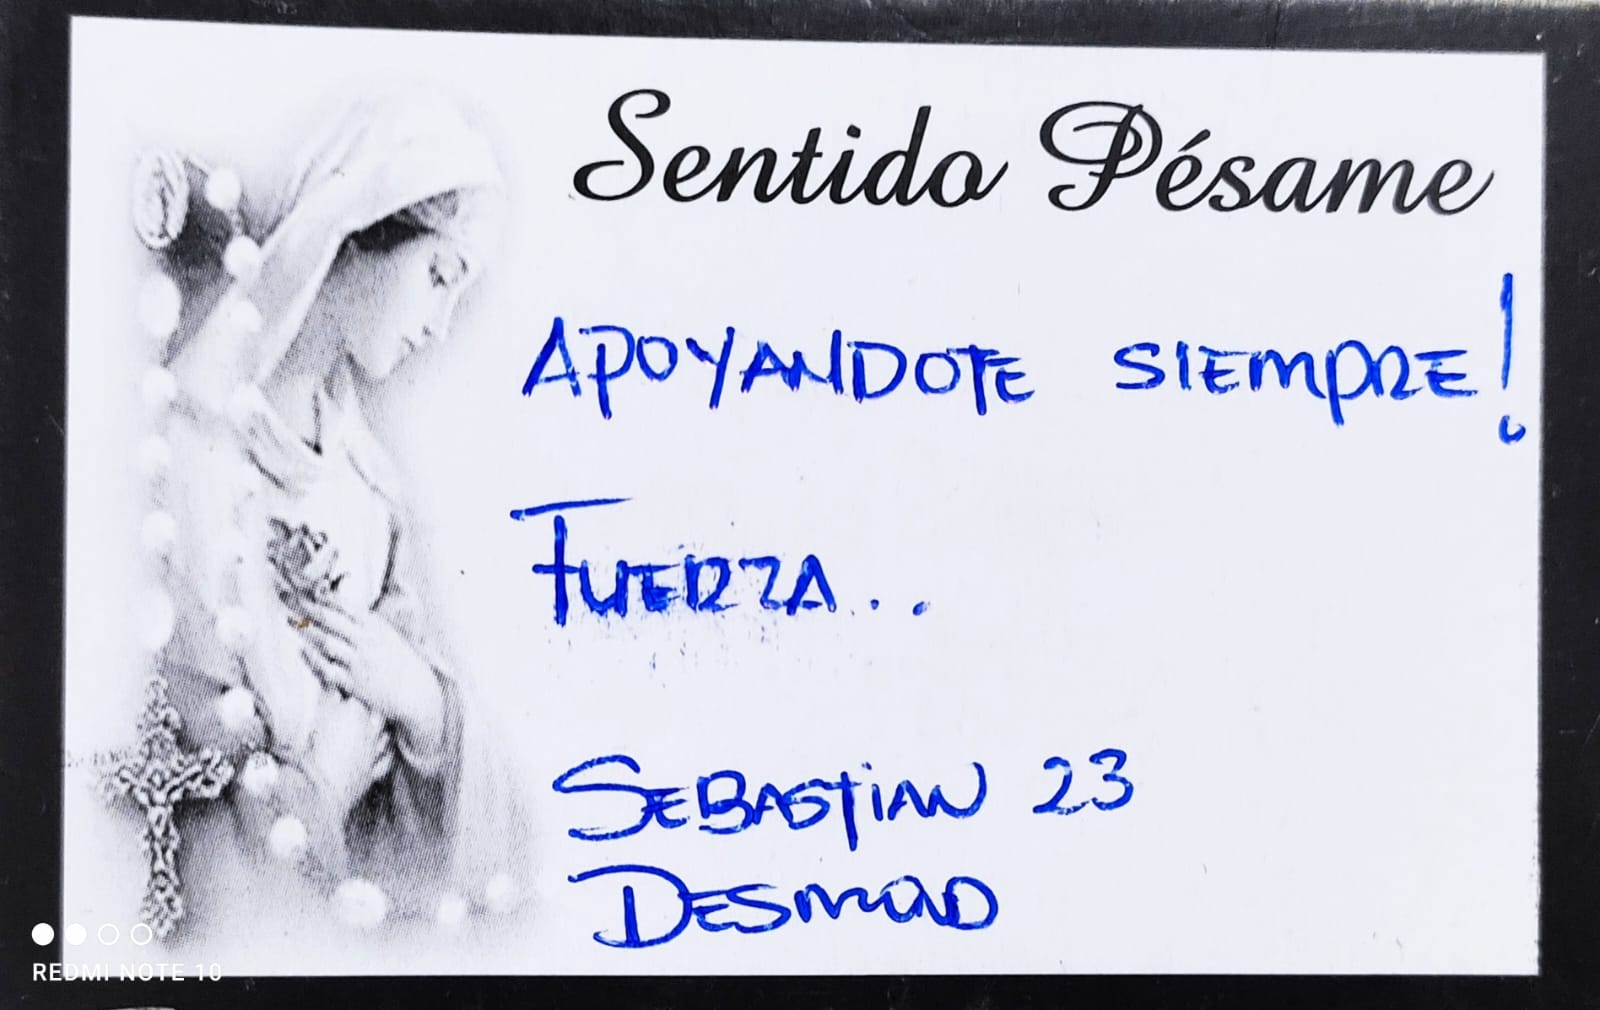 Sentido Pésame
APOYANDOTE SIEMPRE!
FUERZA..
SEBASTIAN 23
DESMOND
REDMI NOTE 10